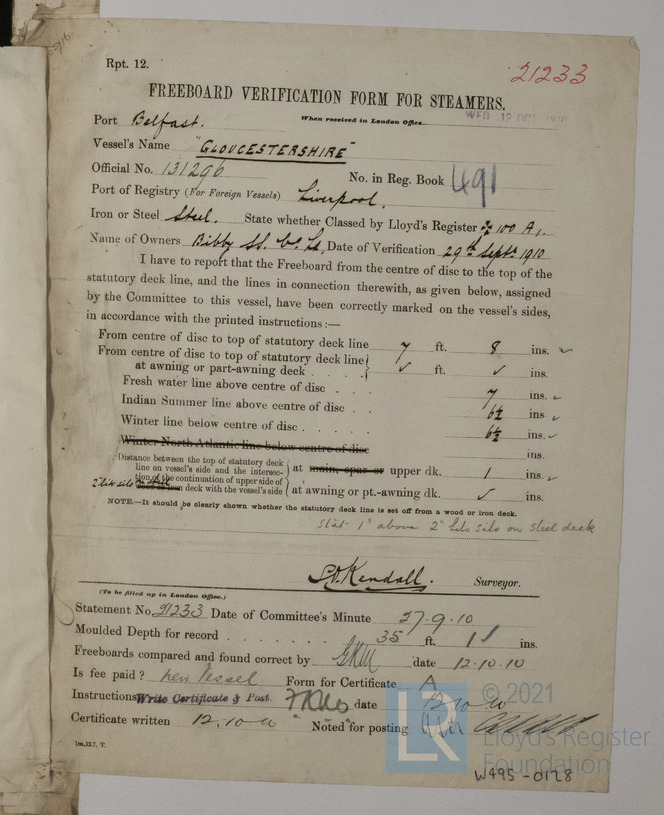 Rpt. 12.
21233
FREEBOARD VERIFICATION FORM FOR STEAMERS.
When received in London Office
WED 12 OCT 1910
Port Belfast.
Vessel's Name "GLOUCESTERSHIRE"
Official No. 131296 No. in Reg. Book 491
Port of Registry (For Foreign Vessels) Liverpool.
Iron or Steel Steel. State whether Classed by Lloyd's Register ✠ 100 A1.
Name of Owners Bibby SS. Co Ld, Date of Verification 29th Septr 1910
I have to report that the Freeboard from the centre of disc to the top of the
statutory deck line, and the lines in connection therewith, as given below, assigned
by the Committee to this vessel, have been correctly marked on the vessel's sides,
in accordance with the printed instructions:—
From centre of disc to top of statutory deck line 7 ft. 8 ins. ✓
From centre of disc to top of statutory deck line
at awning or part-awning deck . . . . ✓ ft. ✓ ins.
Fresh water line above centre of disc . . . 7 ins. ✓
Indian Summer line above centre of disc . . 6½ ins. ✓
Winter line below centre of disc . . . . . 6½ ins. ✓
Winter North Atlantic line below centre of disc ins.
Distance between the top of statutory deck
line on vessel's side and the intersec-
tion of the continuation of upper side of
deck with the vessel's side
at main, spar or upper dk. 1 ins. ✓
at awning or pt.-awning dk. ✓ ins.
NOTE.—It should be clearly shown whether the statutory deck line is set off from a wood or iron deck.
Stat 1" above 2" lito silo on steel deck
Kendall. Surveyor.
(To be filled up in London Office.)
Statement No. 21233 Date of Committee's Minute 27.9.10
Moulded Depth for record . . . . . . . 35 ft. 1 ins.
Freeboards compared and found correct by date 12.10.10
Is fee paid? new vessel Form for Certificate A
Instructions Write Certificate & Post. date 12.10.10
Certificate written 12.10.10 Noted for posting
1m,12,7, T.
© 2021
LR
Lloyd's Register
Foundation
W495-0128